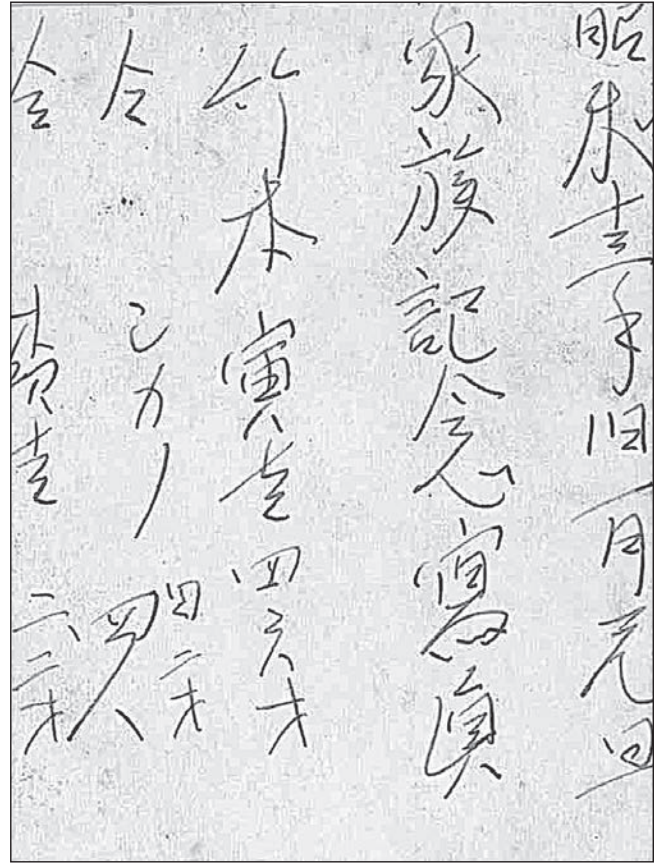 昭和十三年旧一月元旦
家族記念寫眞
竹本寅吉 四六才
仝 シカノ 四二才
仝 吉 二二才